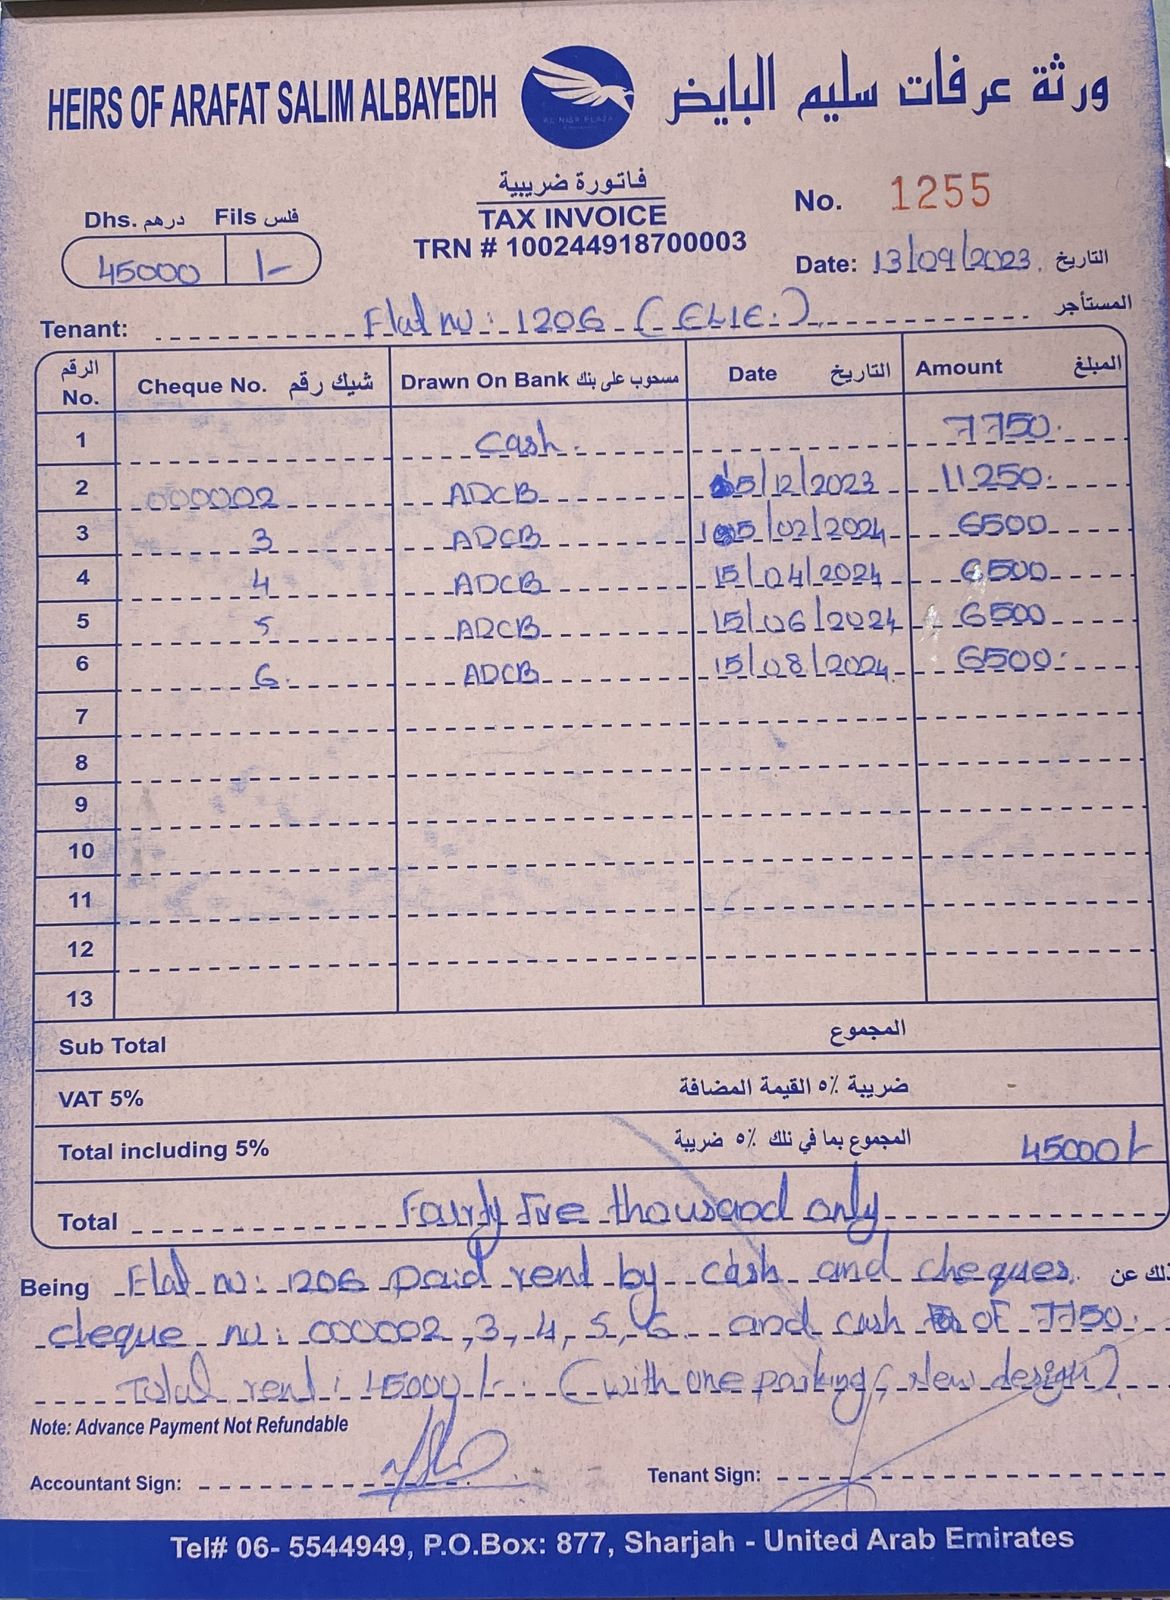 HEIRS OF ARAFAT SALIM ALBAYEDH
AL NISR PLAZA
ورثة عرفات سليم البايض
فاتورة ضريبية
TAX INVOICE
TRN # 100244918700003
No. 1255
Dhs. درهم Fils فلس
45000 /-
Date: 13/09/2023 التاريخ
Tenant: Flat no: 1206 (ELIE.) المستأجر
الرقم No. Cheque No. شيك رقم Drawn On Bank مسحوب على بنك Date التاريخ Amount المبلغ
1 Cash. 7750.
2 000002 ADCB 15/12/2023 11250.
3 3 ADCB 15/02/2024 6500
4 4 ADCB 15/04/2024 6500
5 5 ADCB 15/06/2024 6500
6 6. ADCB 15/08/2024 6500.
7
8
9
10
11
12
13
Sub Total المجموع
VAT 5% ضريبة ٥٪ القيمة المضافة
Total including 5% المجموع بما في ذلك ٥٪ ضريبة 45000/-
Total Fourty Five thousand only
Being Flat no: 1206 paid rent by cash and cheques. ذلك عن
cheque no: 000002, 3, 4, 5, 6 and cash of 7750.
Total rent: 45000/- (with one parking, New design)
Note: Advance Payment Not Refundable
Accountant Sign: Tenant Sign:
Tel# 06- 5544949, P.O.Box: 877, Sharjah - United Arab Emirates